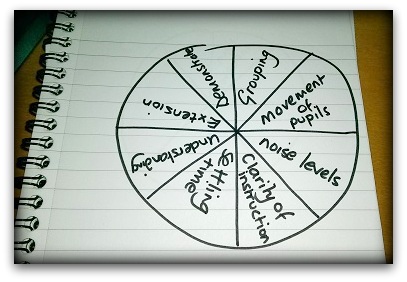 Grouping
movement
of
pupils
noise levels
Clarity of
instruction
Settling
time
Understanding
Extension
Demonstrate